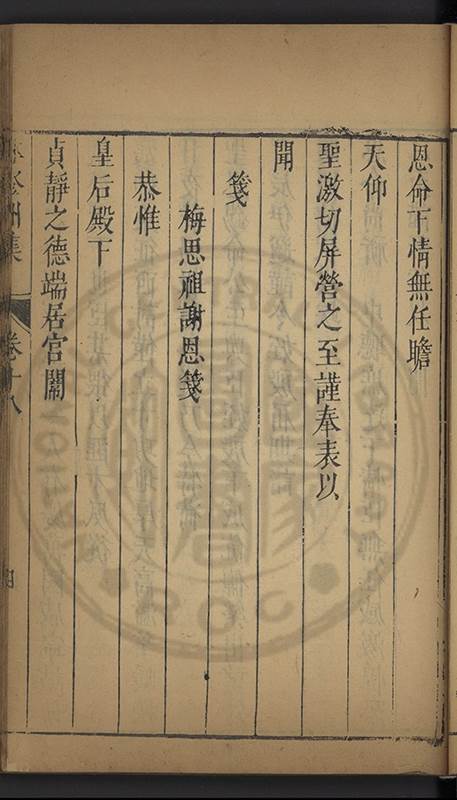 恩命下情無任瞻
天仰
聖激切屏營之至謹奉表以
聞
箋
梅思祖謝恩箋
恭惟
皇后殿下
貞靜之德端居宮闈
登州集
卷十八
四